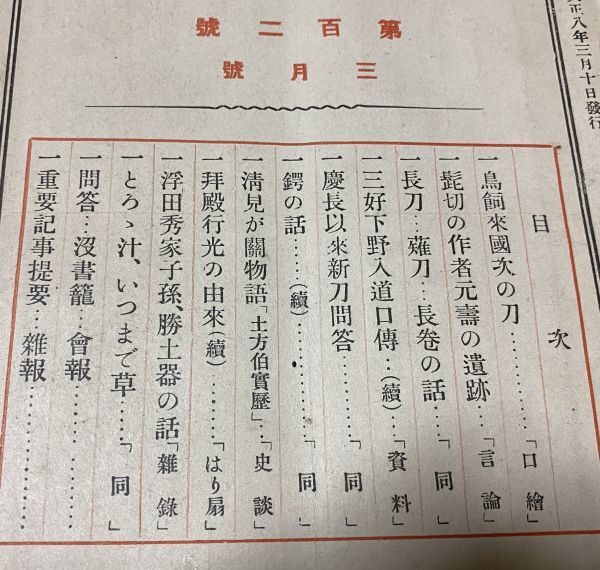 正八年三月十日發行
第百二號
三月號
目次
一鳥飼來國次の刀………「口繪」
一髭切の作者元壽の遺跡…「言論」
一長刀…薙刀…長卷の話……「同」
一三好下野入道口傳…(續)…「資料」
一慶長以來新刀問答………「同」
一鍔の話……(續)…………「同」
一淸見が關物語「土方伯實歷」…「史談」
一拜殿行光の由來(續)……「はり扇」
一浮田秀家子孫、勝土器の話「雜錄」
一とろゝ汁、いつまで草……「同」
一問答…沒書籠…會報………
一重要記事提要…雜報…………